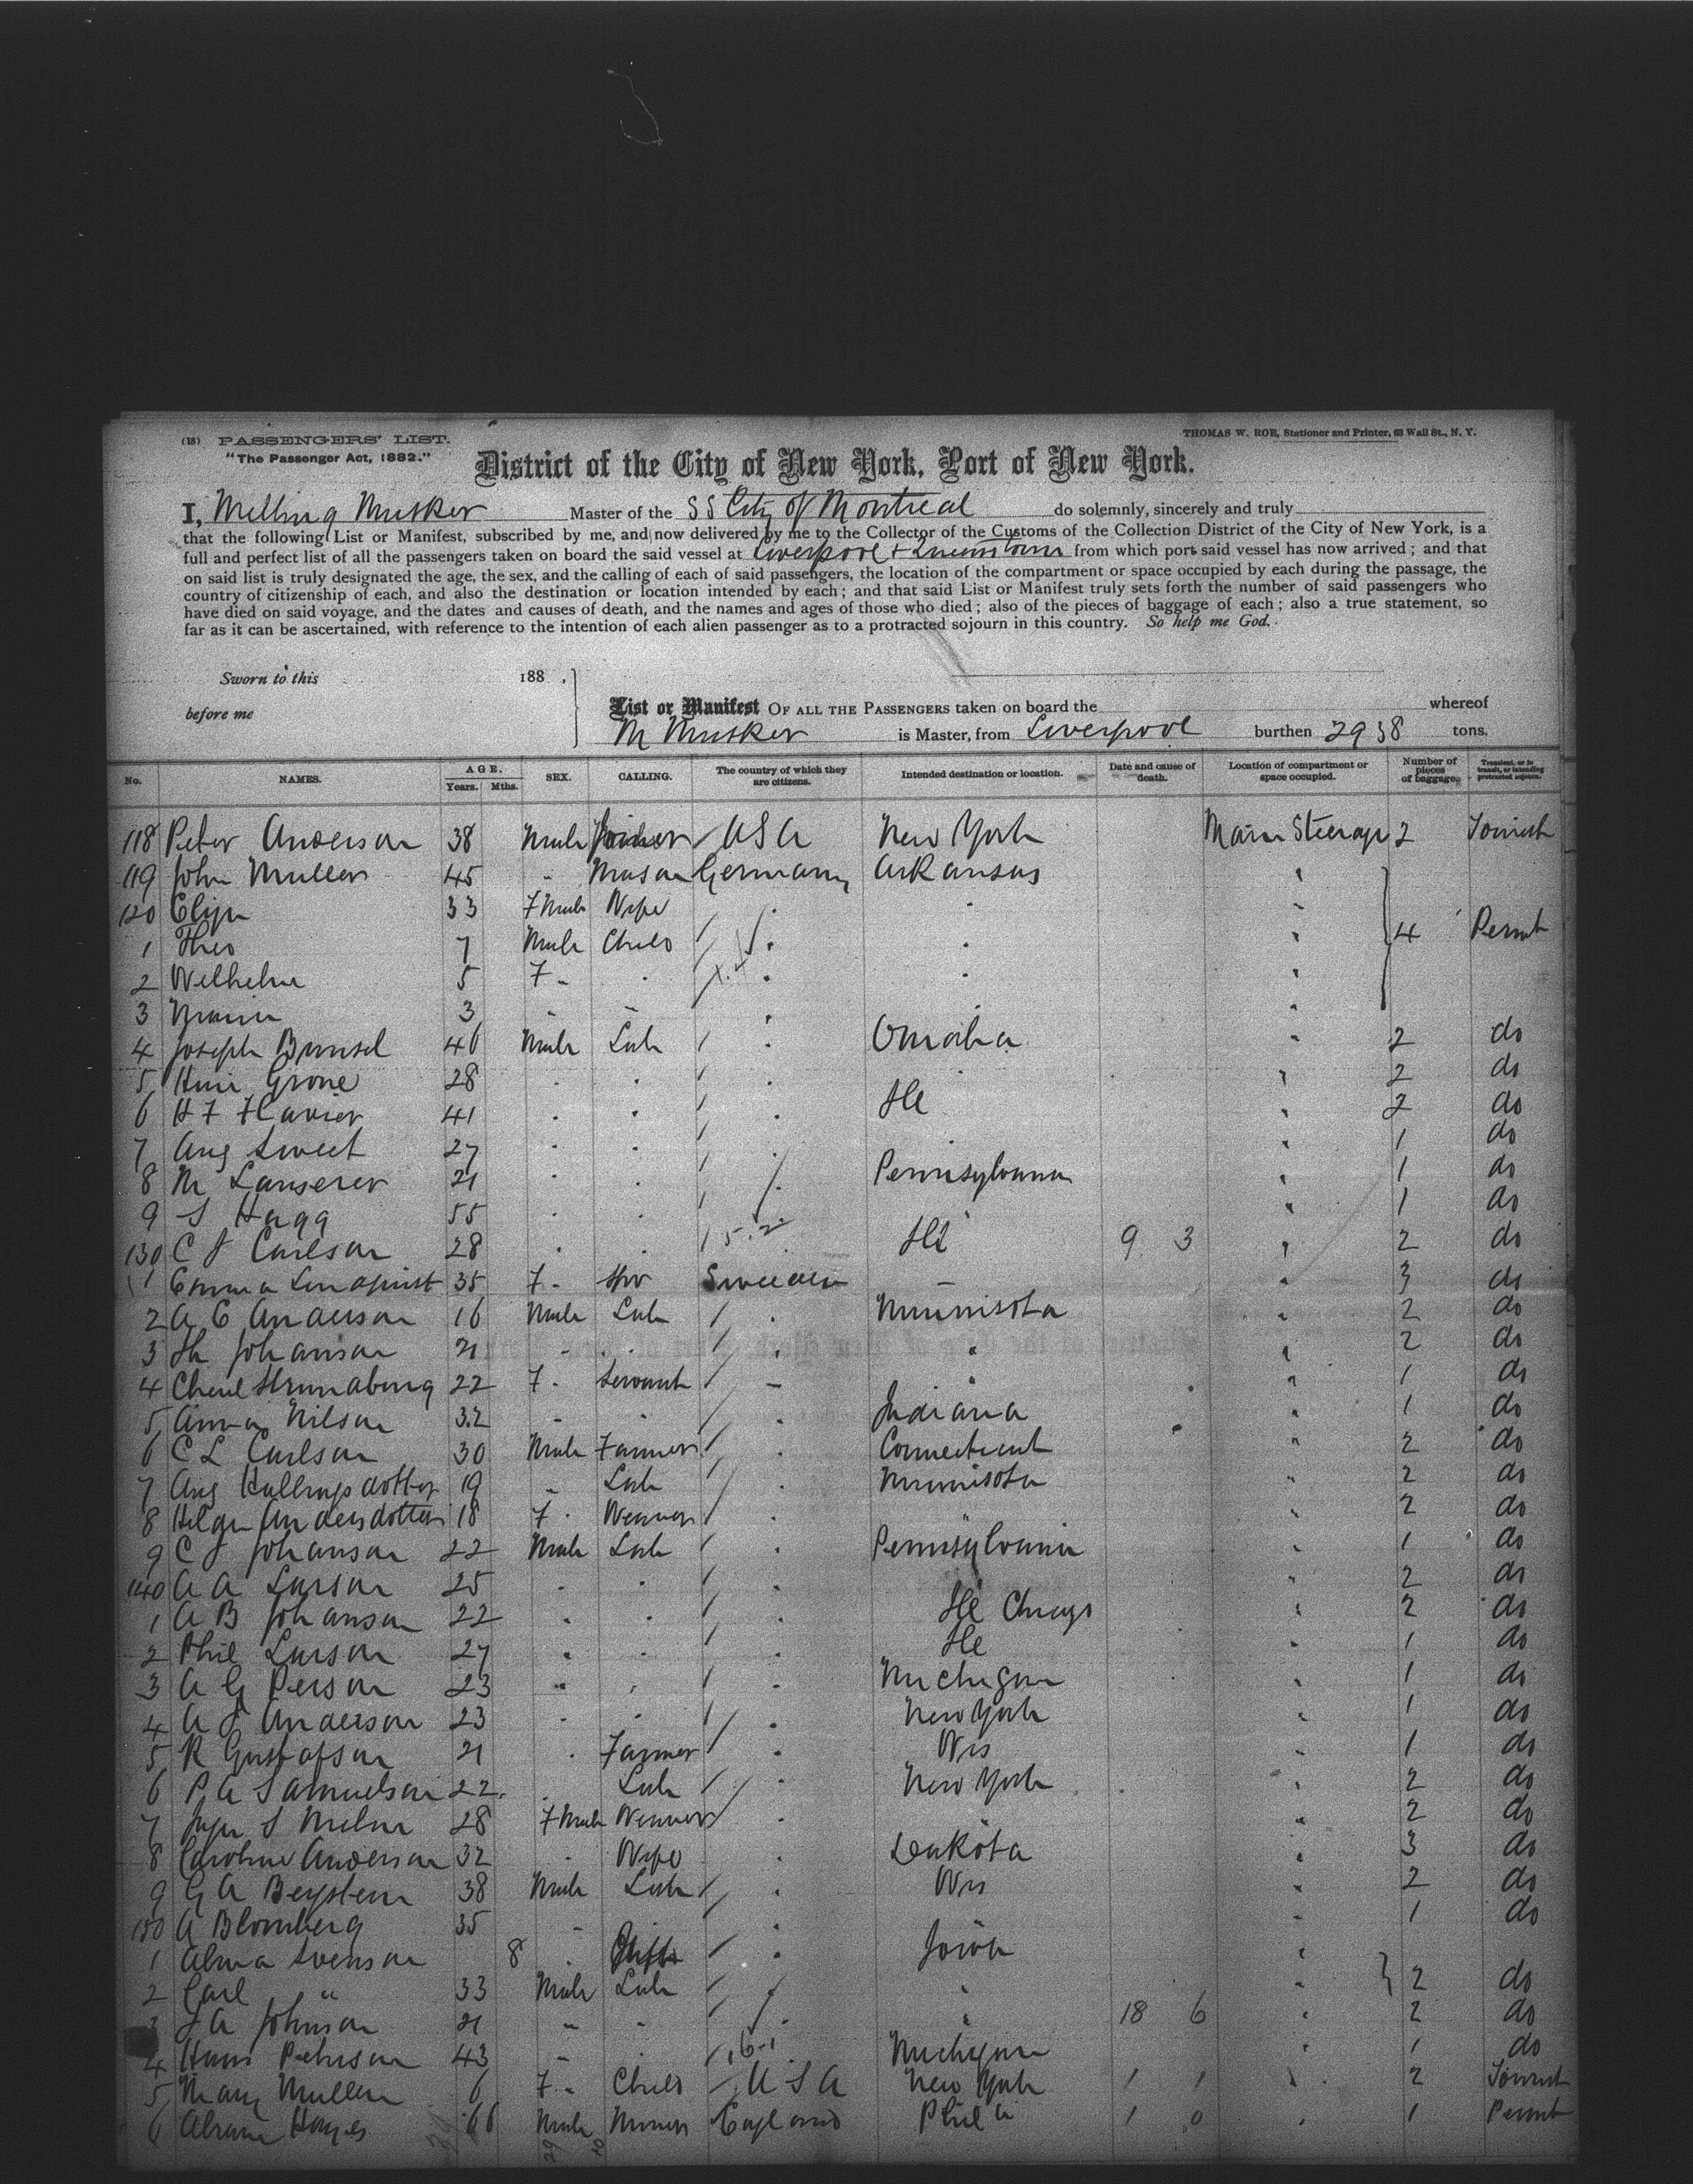 (18) PASSENGERS' LIST.
"The Passenger Act, 1882."
THOMAS W. ROE, Stationer and Printer, 63 Wall St., N. Y.
District of the City of New York, Port of New York.
I, Melling Musker Master of the SS City of Montreal do solemnly, sincerely and truly
that the following List or Manifest, subscribed by me, and now delivered by me to the Collector of the Customs of the Collection District of the City of New York, is a
full and perfect list of all the passengers taken on board the said vessel at Liverpool + Queenstown from which port said vessel has now arrived; and that
on said list is truly designated the age, the sex, and the calling of each of said passengers, the location of the compartment or space occupied by each during the passage, the
country of citizenship of each, and also the destination or location intended by each; and that said List or Manifest truly sets forth the number of said passengers who
have died on said voyage, and the dates and causes of death, and the names and ages of those who died; also of the pieces of baggage of each; also a true statement, so
far as it can be ascertained, with reference to the intention of each alien passenger as to a protracted sojourn in this country. So help me God.
Sworn to this 188 .
before me
List or Manifest OF ALL THE PASSENGERS taken on board the whereof
M Musker is Master, from Liverpool burthen 2938 tons.
No. NAMES. AGE. Years. Mths. SEX. CALLING. The country of which they are citizens. Intended destination or location. Date and cause of death. Location of compartment or space occupied. Number of pieces of baggage. Transient, or in transit, or intending protracted sojourn.
118 Peter Anderson 38 Male USA New York Main Steerage 2 Tourist
119 John Muller 45 " Mason Germany Arkansas
120 33 F Male Wife
1 Theo 7 Male Child 4 Permt
2 Wilhelm 5 F "
3 3 "
4 Joseph 46 Male Lab Omaha 2 do
5 Grone 28 2 do
6 H F 41 Ill 2 do
7 Aug Sweet 27 1 do
8 M Lanserer 21 Pennsylvania 1 do
9 S Hagg 55 1 do
130 C J Carlson 28 15.2 Ill 9 3 2 do
1 Emma Lindquist 35 F " Sweden 3 do
2 A C Anderson 16 Male Lab Minnisota 2 do
3 Johanson 21 2 do
4 22 F " Servant 1 do
5 Anna Nilson 32 Indiana 1 do
6 C L Carlson 30 Male Farmer Connecticut 2 do
7 Aug 19 " Lab Minnisota 2 do
8 Andersdotter 18 F " Weaver 2 do
9 C J Johanson 22 Male Lab Pennsylvania 1 do
140 A A Larson 25 2 do
1 A B Johanson 22 Ill Chicago 2 do
2 Phil Larson 27 Ill 1 do
3 A G Person 23 Michigan 1 do
4 A J Anderson 23 New York 1 do
5 R Gustafson 21 Farmer Wis 1 do
6 P A Samuelson 22 Lab New York 2 do
7 28 F Male Weaver 2 do
8 Caroline Anderson 32 Wife Dakota 3 do
9 G A 38 Male Lab Wis 2 do
150 A Blomberg 35 " 1 do
1 Alma Svenson 8 Iowa
2 Carl " 33 Male Lab 2 do
3 J A Johnson 21 " 18 6 2 do
4 Hans Peterson 43 " 16-1 Michigan 1 do
5 Mary Mullen 6 F " Child USA New York 1 1 2 Tourist
6 Abram Hayes 66 Male Miner England Phila 1 0 1 Permt